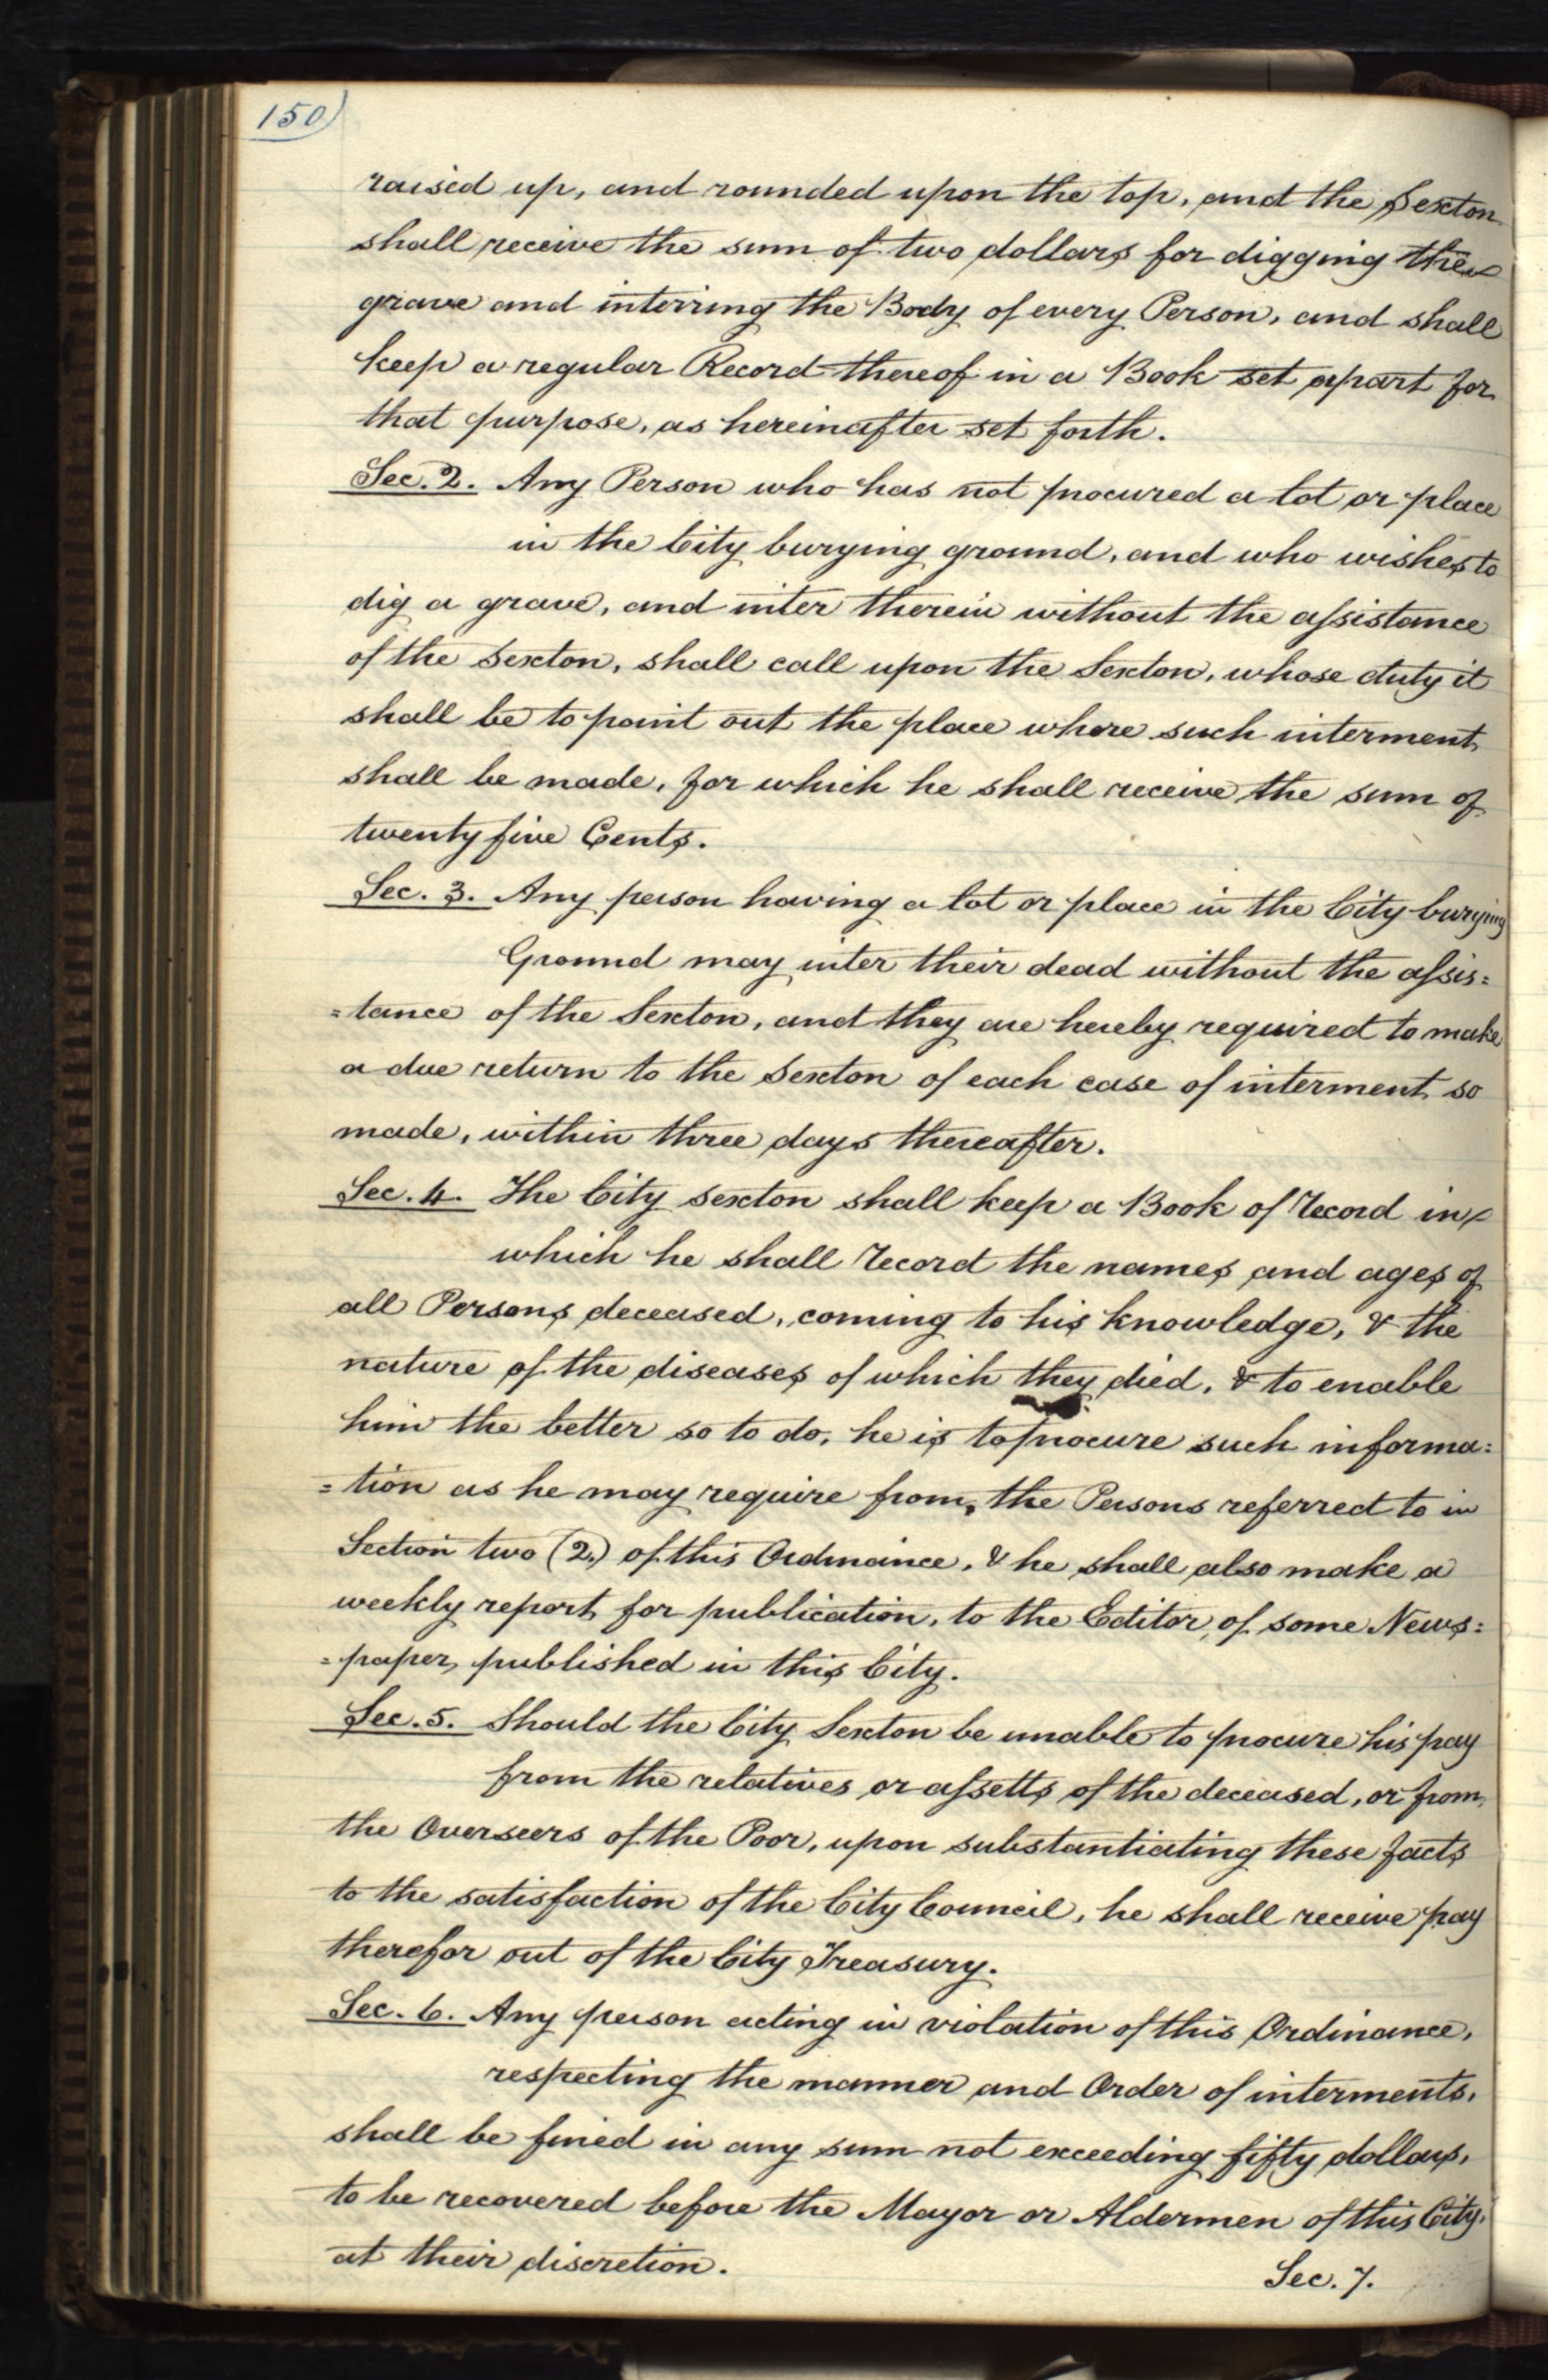 150)
raised up, and rounded upon the top, and the Sexton
shall receive the sum of two dollars for digging the
grave and interring the Body of every Person, and shall
keep a regular Record thereof in a Book set apart for
that purpose, as hereinafter set forth.
Sec. 2. Any Person who has not procured a lot or place
in the City burying ground, and who wishes to
dig a grave, and inter therein without the assistance
of the Sexton, shall call upon the Sexton, whose duty it
shall be to point out the place where such interment
shall be made, for which he shall receive the sum of
twenty five Cents.
Sec. 3. Any person having a lot or place in the City burying
Ground may inter their dead without the assis=
=tance of the Sexton, and they are hereby required to make
a due return to the Sexton of each case of interment so
made, within three days thereafter.
Sec. 4. The City Sexton shall keep a Book of Record in
which he shall Record the names and ages of
all Persons deceased, coming to his knowledge, & the
nature of the diseases of which they died, & to enable
him the better so to do, he is to procure such informa=
=tion as he may require from, the Persons referred to in
Section two (2.) of this Ordinance, & he shall also make a
weekly report for publication, to the Editor of some News=
=paper, published in this City.
Sec. 5. Should the City Sexton be unable to procure his pay
from the relatives or assetts of the deceased, or from
the Overseers of the Poor, upon substantiating these facts
to the satisfaction of the City Council, he shall receive pay
therefor out of the City Treasury.
Sec. 6. Any person acting in violation of this Ordinance,
respecting the manner and Order of interments,
shall be fined in any sum not exceeding fifty dollars,
to be recovered before the Mayor or Aldermen of this City,
at their discretion.
Sec. 7.